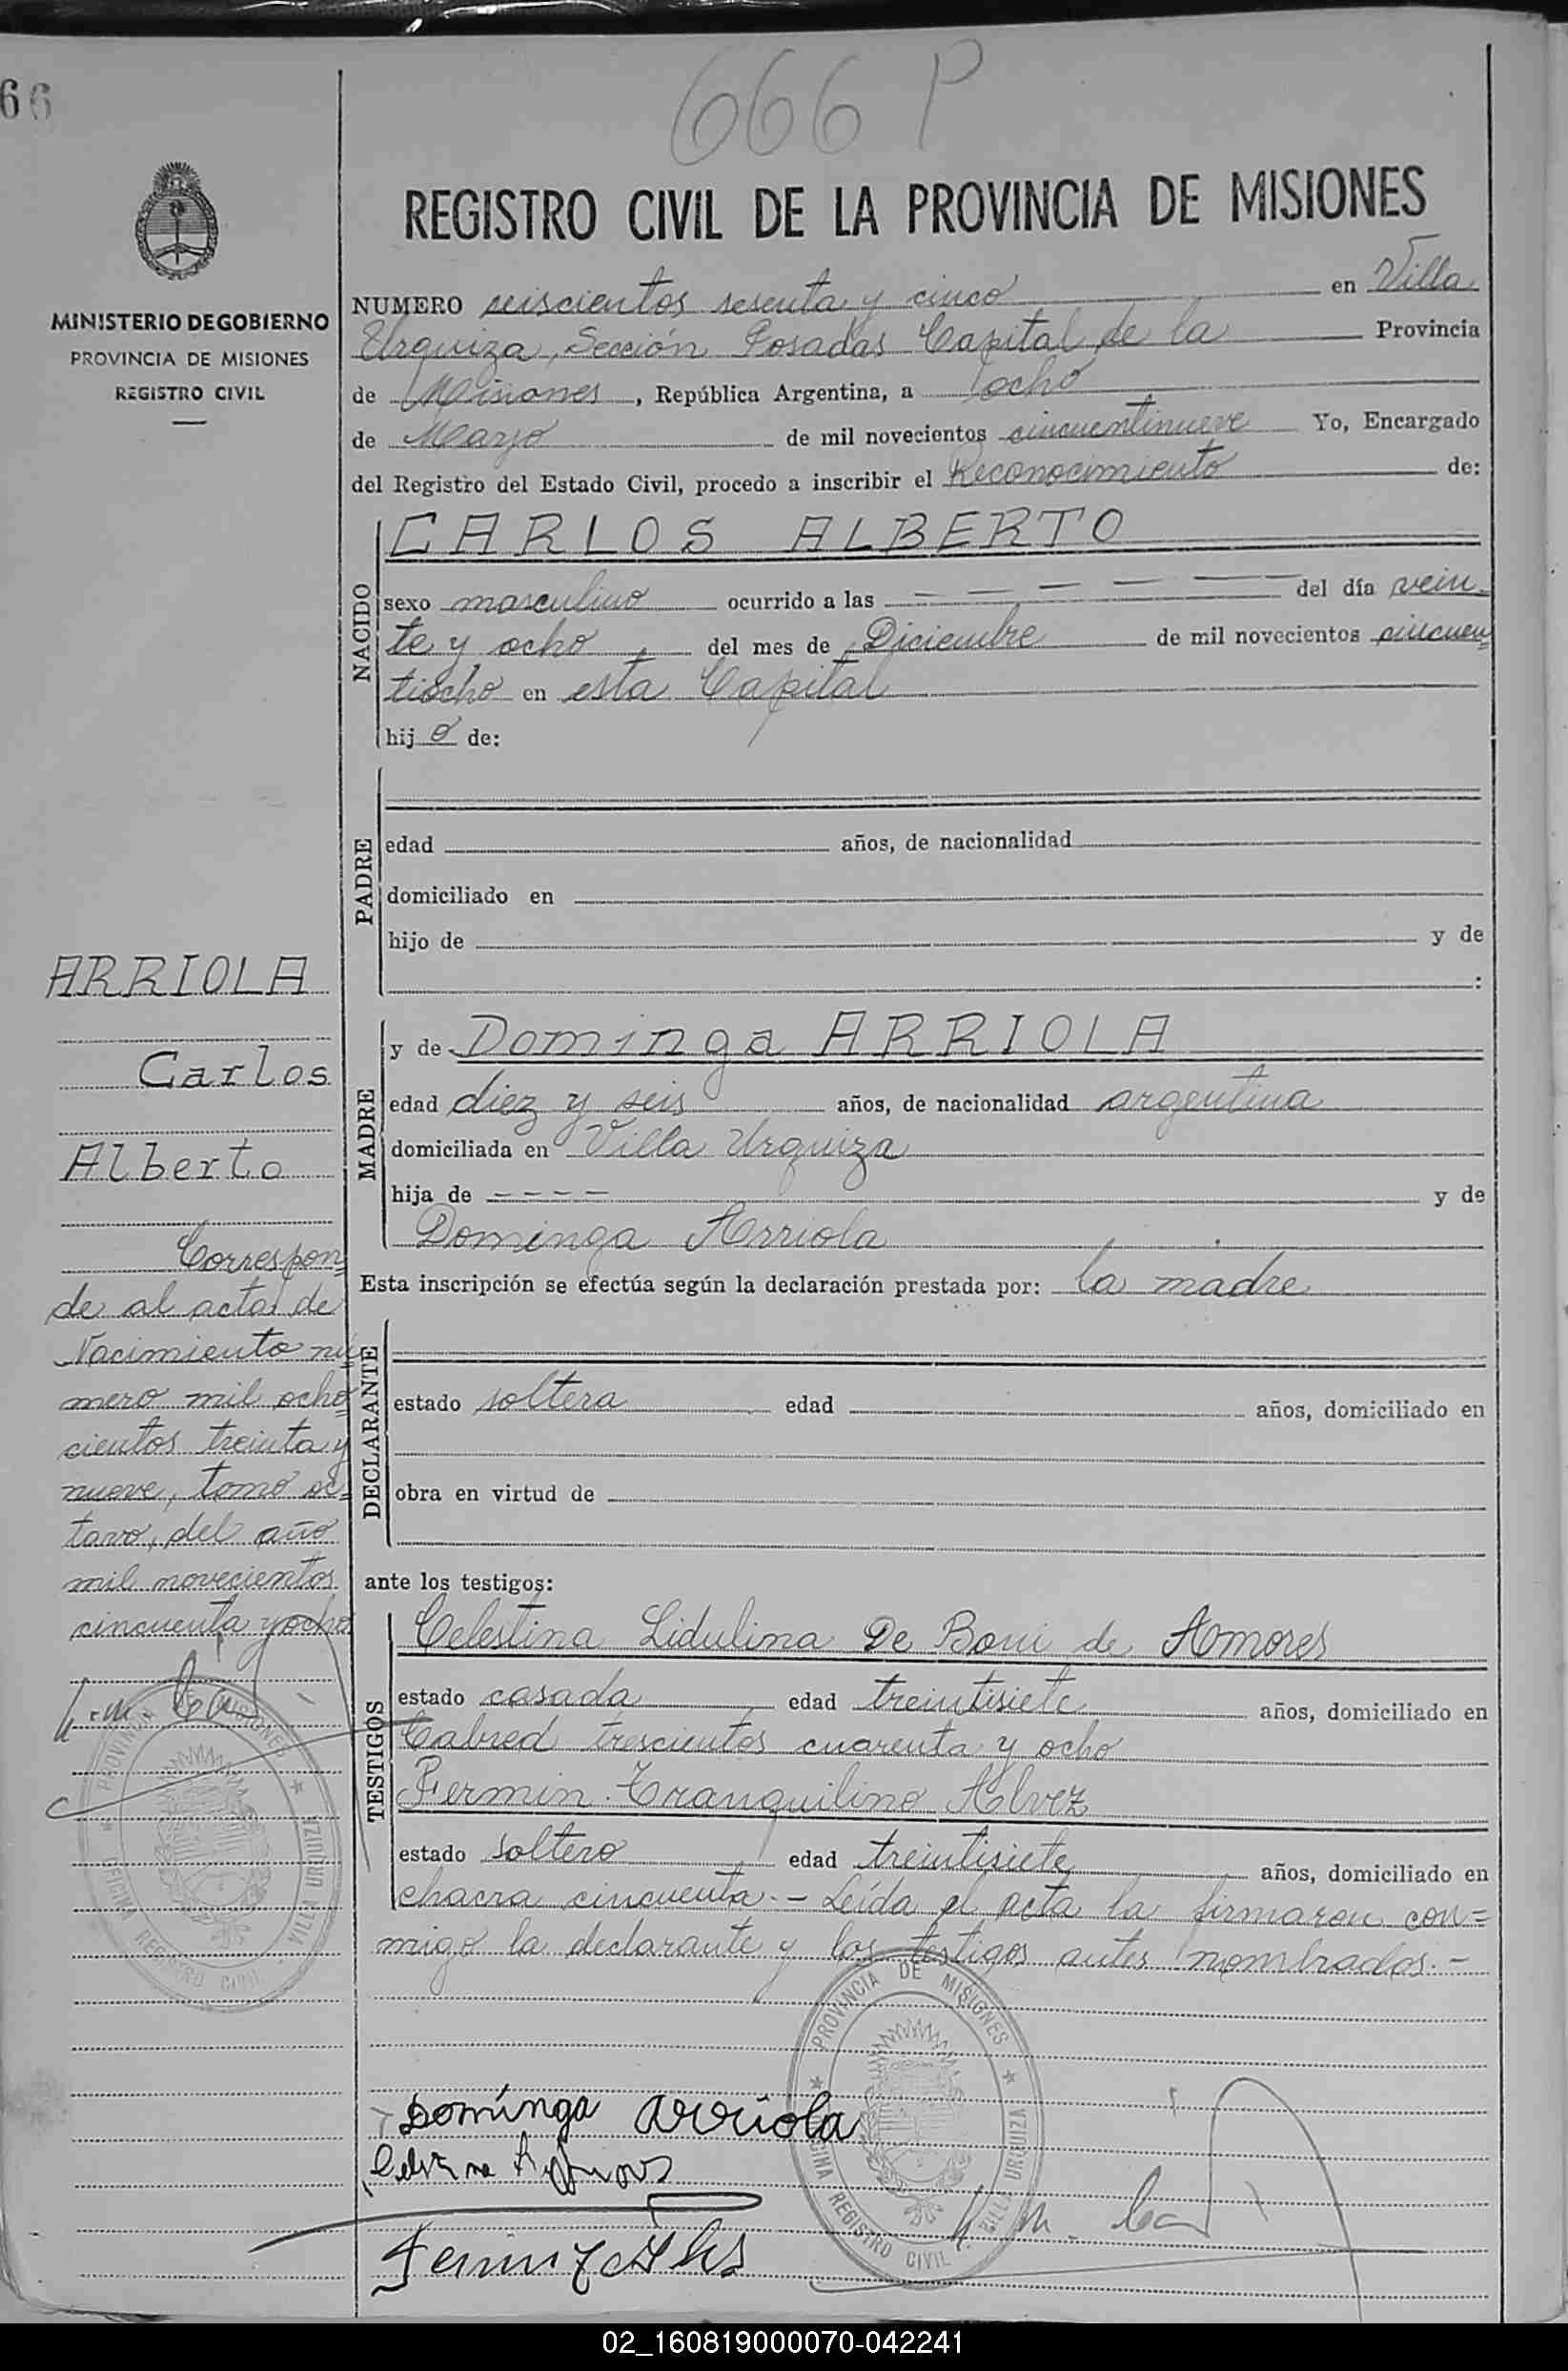 66
666 P
REGISTRO CIVIL DE LA PROVINCIA DE MISIONES
MINISTERIO DE GOBIERNO
PROVINCIA DE MISIONES
REGISTRO CIVIL
NUMERO seiscientos sesenta y cinco en Villa
Urquiza, Sección Posadas Capital de la Provincia
de Misiones, República Argentina, a ocho
de Marzo de mil novecientos cincuentinueve Yo, Encargado
del Registro del Estado Civil, procedo a inscribir el Reconocimiento de:
NACIDO
CARLOS ALBERTO
sexo masculino ocurrido a las - - - - - del día vein-
te y ocho del mes de Diciembre de mil novecientos cincuen=
tiocho en esta Capital
hijo de:
PADRE
edad años, de nacionalidad
domiciliado en
hijo de y de
:
ARRIOLA
Carlos
Alberto
Correspon=
de al acta de
Nacimiento nú=
mero mil ocho=
cientos treinta y
nueve, tomo oc=
tavo, del año
mil novecientos
cincuenta y ocho
MADRE
y de Dominga ARRIOLA
edad diez y seis años, de nacionalidad argentina
domiciliada en Villa Urquiza
hija de - - - - y de
Dominga Arriola
Esta inscripción se efectúa según la declaración prestada por: la madre
DECLARANTE
estado soltera edad años, domiciliado en
obra en virtud de
ante los testigos:
TESTIGOS
Celestina Lidulina De Boni de Amores
estado casada edad treintisiete años, domiciliado en
Cabred trescientos cuarenta y ocho
Fermin Tranquilino Alvez
estado soltero edad treintisiete años, domiciliado en
chacra cincuenta.- Leída el acta la firmaron con=
migo la declarante y los testigos antes nombrados.-
PROVINCIA DE MISIONES
OFICINA REGISTRO CIVIL
VILLA URQUIZA
Dominga arriola
PROVINCIA DE MISIONES
OFICINA REGISTRO CIVIL
VILLA URQUIZA
02_160819000070-042241